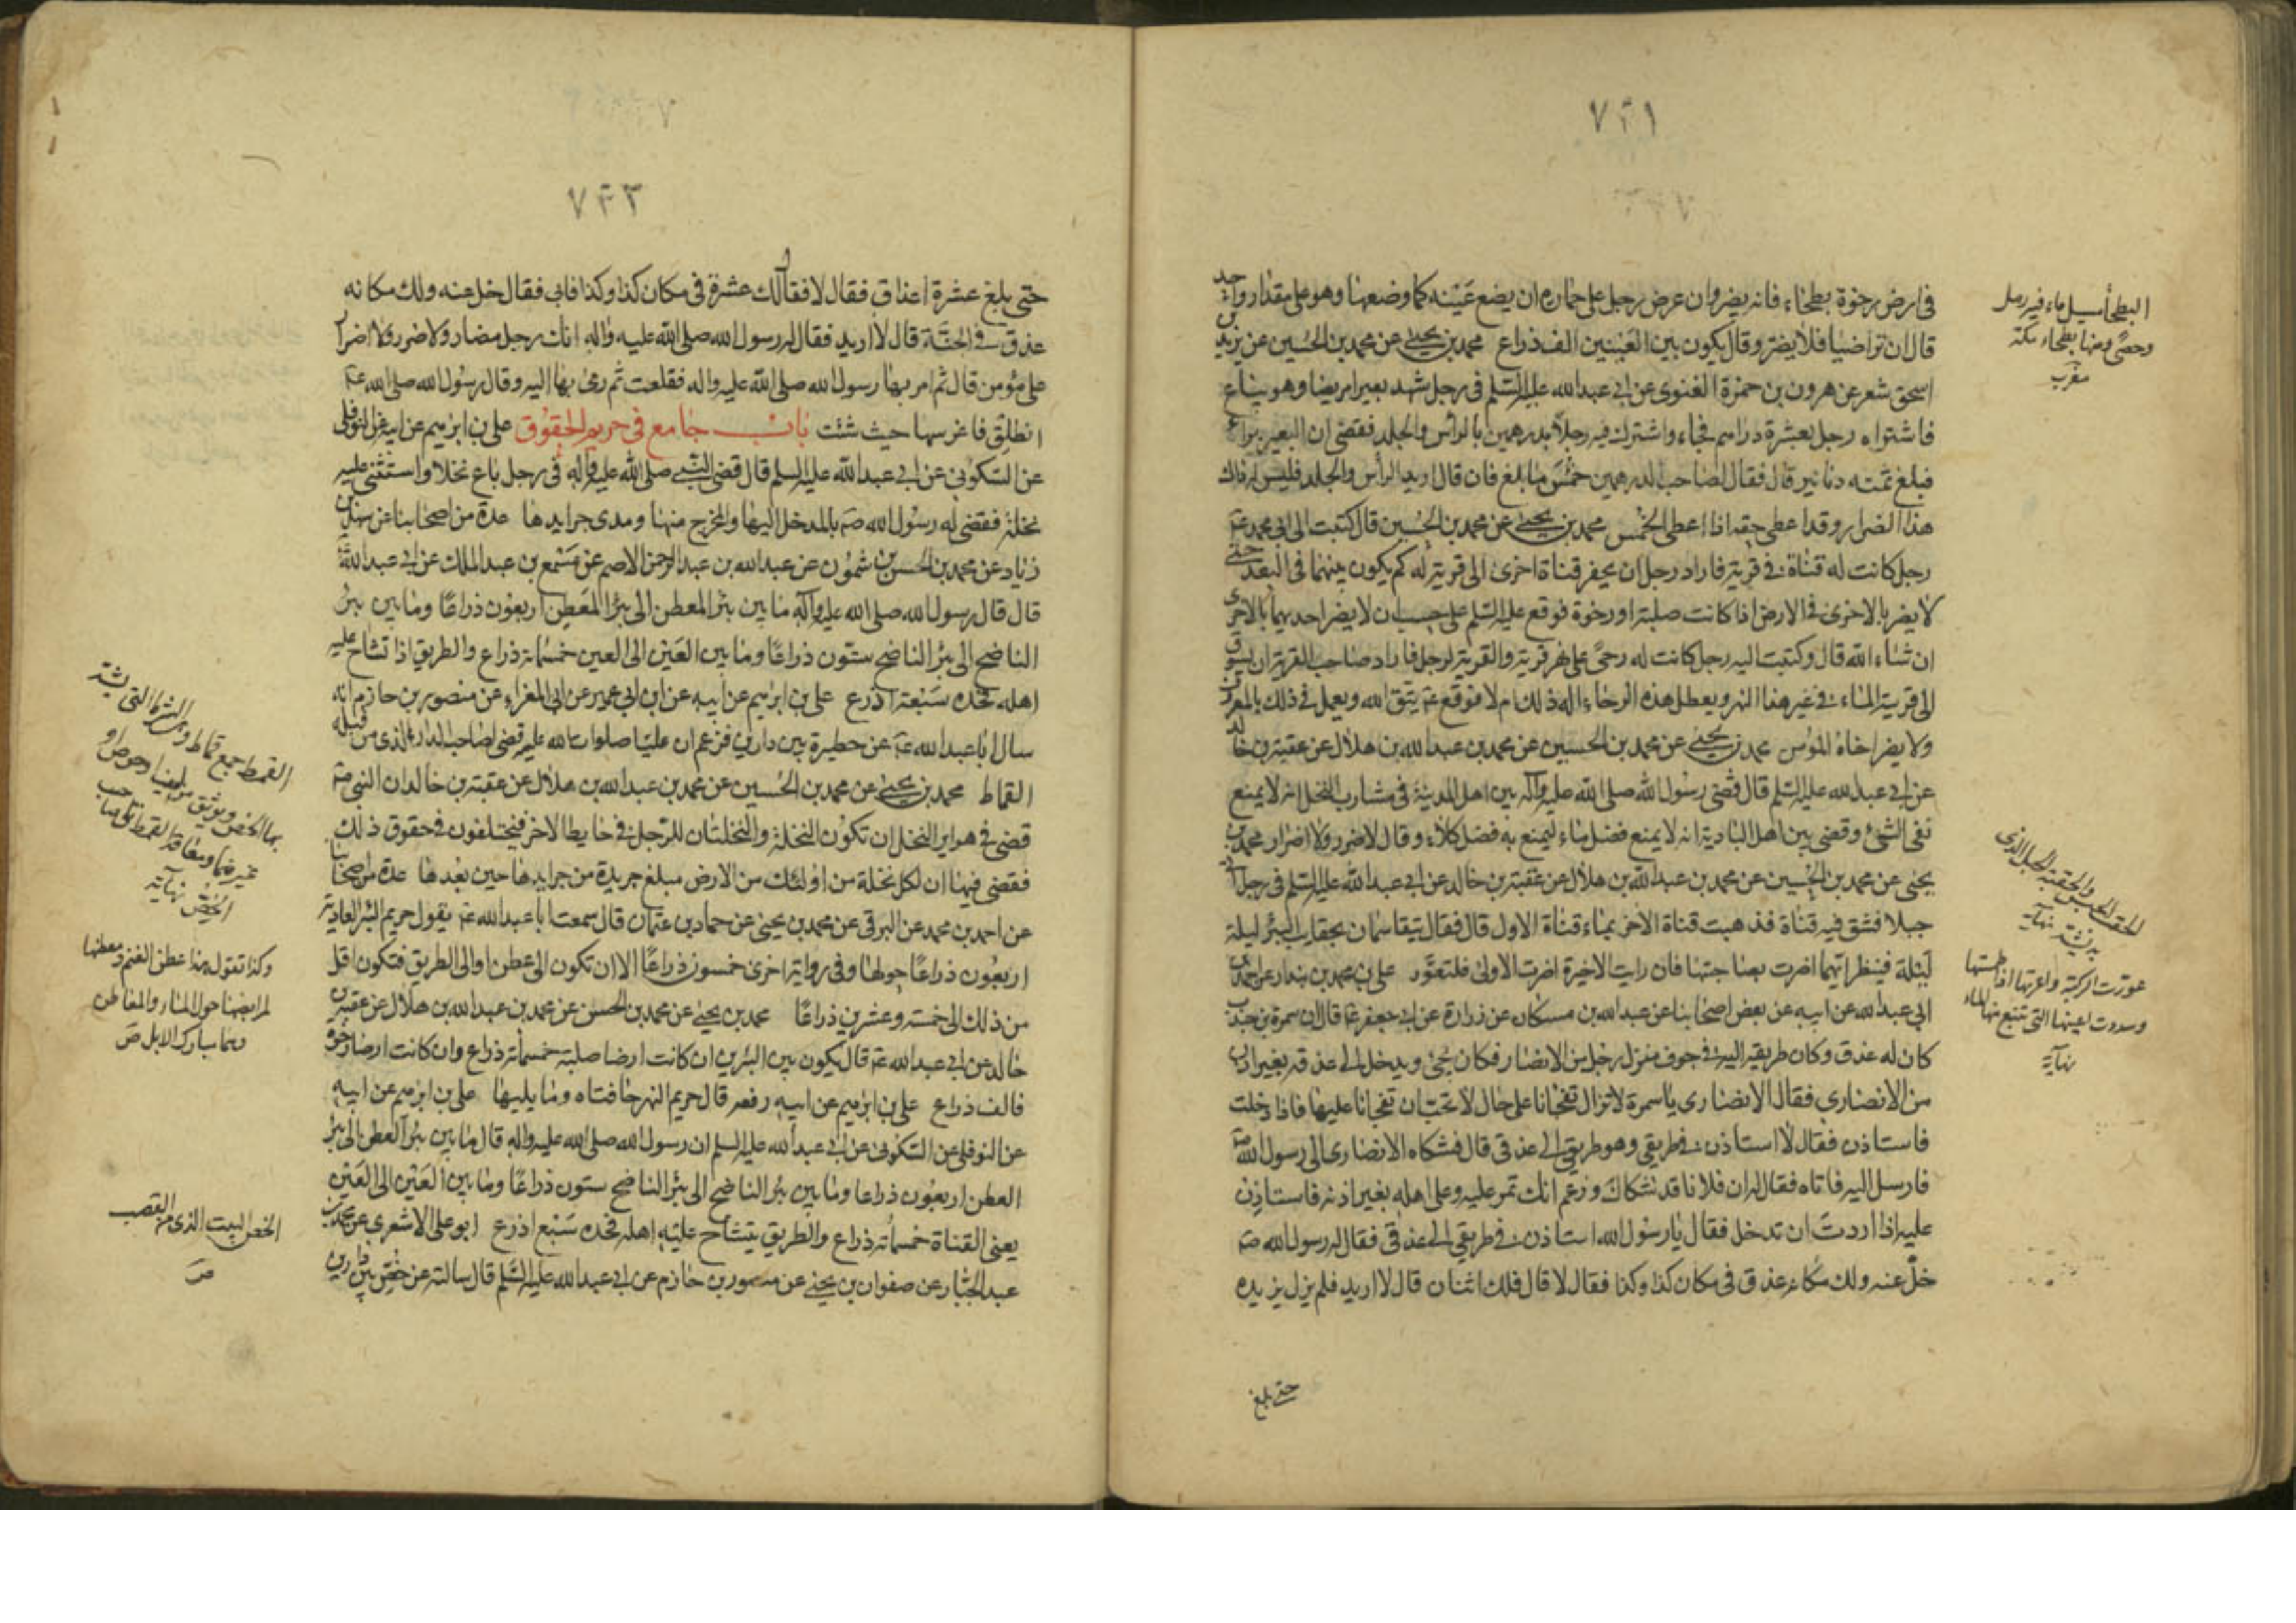 ٧٢١
فى ارض رخوة بطحاء فانه يضر وان عرض رجل على جاره ان يضع عينه كما وضعها وهو على مقدار واحد
قال ان تراضيا فلا يضر وقال يكون بين العينين الف ذراع محمد بن يحيى عن محمد بن الحسين عن يزيد بن
اسحق شعر عن هرون بن حمزة الغنوى عن ابى عبدالله عليه السلم فى رجل شهد بعيرا مريضا وهو يباع
فاشتراه رجل بعشرة دراهم فجاء واشترك فيه رجلا بدرهمين بالرأس والجلد فقضى ان البعير برأ
فبلغ ثمنه دنانير قال فقال لصاحب الدرهمين خمس ما بلغ فان قال اريد الرأس والجلد فليس له ذلك
هذا الضرار وقد اعطى حقه اذا اعطى الخمس محمد بن يحيى عن محمد بن الحسين قال كتبت الى ابى محمد ع
رجل كانت له قناة فى قرية فاراد رجل ان يحفر قناة اخرى الى قرية له كم يكون بينهما فى البعد حتى
لا يضر بالاخرى فى الارض اذا كانت صلبة او رخوة فوقع عليه السلم على حسب ان لا يضر احديهما بالاخرى
ان شاء الله قال وكتبت اليه رجل كانت له رحى على نهر قرية والقرية لرجل فاراد صاحب القرية ان يسوق
الى قريته الماء فى غير هذا النهر ويعطل هذه الرحاء اله ذلك ام لا فوقع ع يتق الله ويعمل فى ذلك بالمعروف
ولا يضر اخاه المؤمن محمد بن يحيى عن محمد بن الحسين عن محمد بن عبدالله بن هلال عن عقبة بن خالد
عن ابى عبدالله عليه السلم قال قضى رسول الله صلى الله عليه وآله بين اهل المدينة فى مشارب النخل انه لا يمنع
نفع الشئ وقضى بين اهل البادية انه لا يمنع فضل ماء ليمنع به فضل كلاء وقال لا ضرر ولا اضرار محمد بن
يحيى عن محمد بن الحسين عن محمد بن عبدالله بن هلال عن عقبة بن خالد عن ابى عبدالله عليه السلم فى رجل اتى
جبلا فشق فيه قناة فذهبت قناة الاخر بماء قناة الاول قال فقال يتقاسمان بحقايب البئر ليلة
ليلة فينظر ايتهما اضرت بصاحبتها فان رايت الاخيرة اضرت الاولى فلتعور على بن محمد بن بندار عن احمد بن
ابى عبدالله عن ابيه عن بعض اصحابنا عن عبدالله بن مسكان عن زرارة عن ابى جعفر ع قال ان سمرة بن جندب
كان له عذق وكان طريقه اليه فى جوف منزل رجل من الانصار فكان يجئ ويدخل الى عذقه بغير اذن
من الانصارى فقال الانصارى يا سمرة لا تزال تفجانا على حال لا نحب ان تفجانا عليها فاذا دخلت
فاستاذن فقال لا استاذن فى طريقى وهو طريقى الى عذقى قال فشكاه الانصارى الى رسول الله ص
فارسل اليه فاتاه فقال له ان فلانا قد شكاك وزعم انك تمر عليه وعلى اهله بغير اذنه فاستاذن
عليه اذا اردت ان تدخل فقال يا رسول الله استاذن فى طريقى الى عذقى فقال له رسول الله ص
خل عنه ولك مكانه عذق فى مكان كذا وكذا فقال لا قال فلك اثنان قال لا اريد فلم يزل يزيده
حتى بلغ
البطحاء مسيل ماء فيه رمل
وحصى ومنها بطحاء مكة
مغرب
نهاية
عورت الركية واعرتها اذا طمستها
وسددت اعينها التى ينبع منها الماء
نهاية
٧٢٣
حتى بلغ عشرة اعذاق فقال لا فقال لك عشرة فى مكان كذا وكذا فابى فقال خل عنه ولك مكانه
عذق فى الجنة قال لا اريد فقال له رسول الله صلى الله عليه واله انك رجل مضار ولا ضرر ولا اضرار
على مؤمن قال ثم امر بها رسول الله صلى الله عليه واله فقلعت ثم رمى بها اليه وقال رسول الله صلى الله ع
انطلق فاغرسها حيث شئت باب جامع فى حريم الحقوق على بن ابرهيم عن ابيه عن النوفلى
عن السكونى عن ابى عبدالله عليه السلم قال قضى النبى صلى الله عليه وآله فى رجل باع نخلا واستثنى عليه
نخلة فقضى له رسول الله ص بالمدخل اليها والمخرج منها ومدى جرايدها عدة من اصحابنا عن سهل بن
زياد عن محمد بن الحسن بن شمون عن عبدالله بن عبدالرحمن الاصم عن مسمع بن عبدالملك عن ابى عبدالله ع
قال قال رسول الله صلى الله عليه وآله ما بين بئر المعطن الى بئر المعطن اربعون ذراعا وما بين بئر
الناضح الى بئر الناضح ستون ذراعا وما بين العين الى العين خمسمائة ذراع والطريق اذا تشاح عليه
اهله فحده سبعة اذرع على بن ابرهيم عن ابيه عن ابن ابى عمير عن ابى المغراء عن منصور بن حازم انه
سال ابا عبدالله ع عن حظيرة بين دارين فزعم ان عليا صلوات الله عليه قضى لصاحب الدار الذى من قبله
القماط محمد بن يحيى عن محمد بن الحسين عن محمد بن عبدالله بن هلال عن عقبة بن خالد ان النبى ص
قضى فى هواير النخل ان تكون النخلة والنخلتان للرجل فى حايط الاخر فيختلفون فى حقوق ذلك
فقضى فيها ان لكل نخلة من اولئك من الارض مبلغ جريدة من جرايدها حين بعدها عدة من اصحابنا
عن احمد بن محمد عن البرقى عن محمد بن يحيى عن حماد بن عثمان قال سمعت ابا عبدالله ع يقول حريم البئر العادية
اربعون ذراعا حولها وفى رواية اخرى خمسون ذراعا الا ان تكون الى عطن او الى الطريق فتكون اقل
من ذلك الى خمسة وعشرين ذراعا محمد بن يحيى عن محمد بن الحسن عن محمد بن عبدالله بن هلال عن عقبة بن
خالد عن ابى عبدالله ع قال يكون بين البئرين ان كانت ارضا صلبة خمسمائة ذراع وان كانت ارضا رخوة
فالف ذراع على بن ابرهيم عن ابيه رفعه قال حريم النهر حافتاه وما يليها على بن ابرهيم عن ابيه
عن النوفلى عن السكونى عن ابى عبدالله عليه السلم ان رسول الله صلى الله عليه واله قال ما بين بئر العطن الى بئر
العطن اربعون ذراعا وما بين بئر الناضح الى بئر الناضح ستون ذراعا وما بين العين الى العين
يعنى القناة خمسمائة ذراع والطريق يتشاح عليه اهله فحده سبع اذرع ابو على الاشعرى عن محمد بن
عبدالجبار عن صفوان بن يحيى عن منصور بن حازم عن ابى عبدالله عليه السلم قال سالته عن خص بين دارين
القمط جمع قماط وهى الشرط التى يشد
بها الخص ويوثق من ليف او خوص او
غيرهما ومعاقد القمط تلى صاحب
الخص نهاية
وكذا تقول هذا عطن الغنم ومعطنها
لمرابضها حول الماء والمعاطن
مبارك الابل ص
الخص البيت الذى من القصب
ص